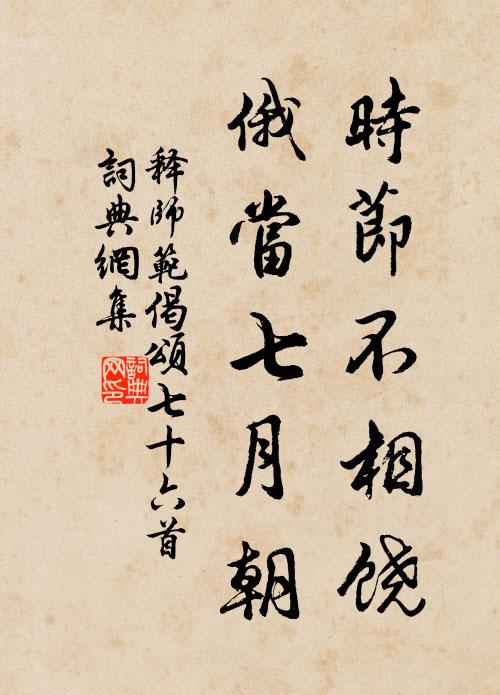 時節不相饶
俄當七月朝
释師範偈頌七十六首
詞典網集
詞典网印